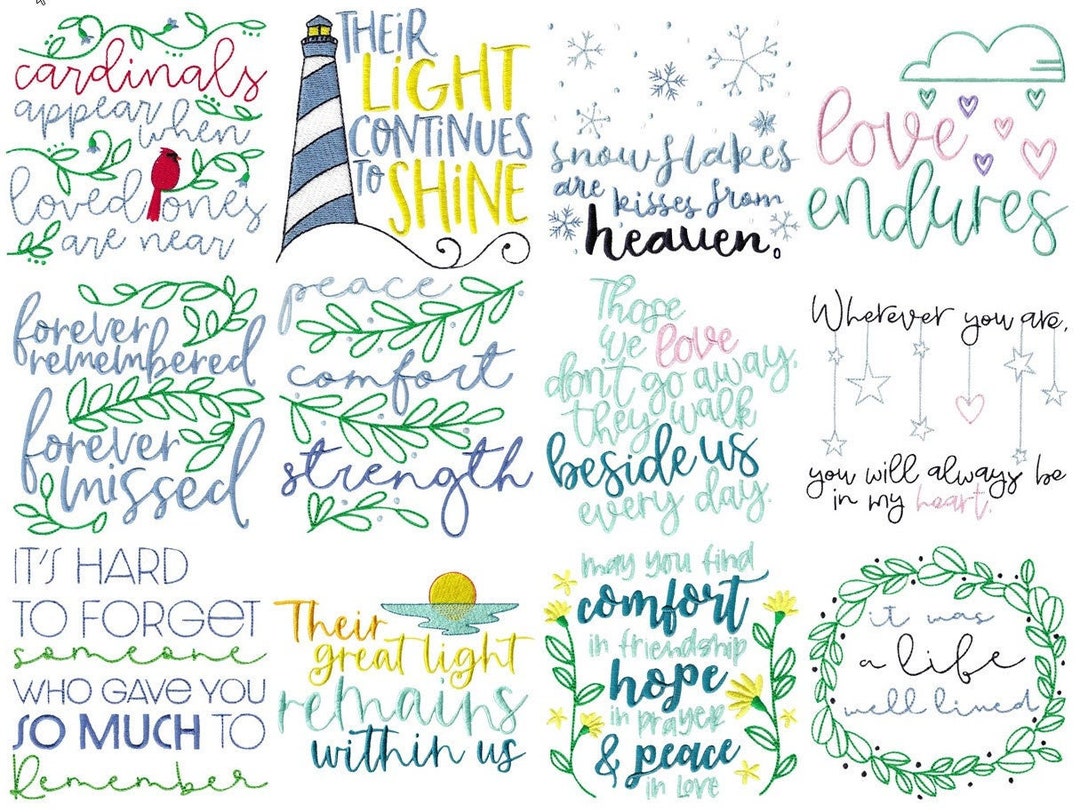 cardinals
appear when
loved ones
are near
THEIR
LIGHT
CONTINUES
TO SHINE
snowflakes
are kisses from
heaven.
love
endures
forever
remembered
forever
missed
peace
comfort
strength
Those
we love
don't go away,
they walk
beside us
every day.
Wherever you are,
you will always be
in my heart.
IT'S HARD
TO FORGET
someone
WHO GAVE YOU
SO MUCH TO
Remember
Their
great light
remains
within us
may you find
comfort
in friendship
hope
in prayer
& peace
in love
it was
a life
well lived